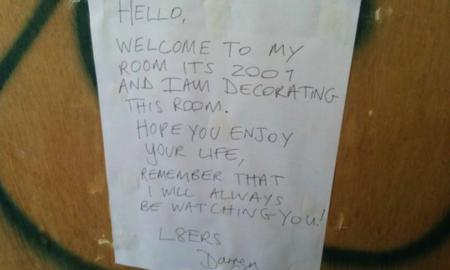 HELLO,
WELCOME TO MY
ROOM ITS 2001
AND I AM DECORATING
THIS ROOM.
HOPE YOU ENJOY
YOUR LIFE,
REMEMBER THAT
I WILL ALWAYS
BE WATCHING YOU!
L8ERS
Darren